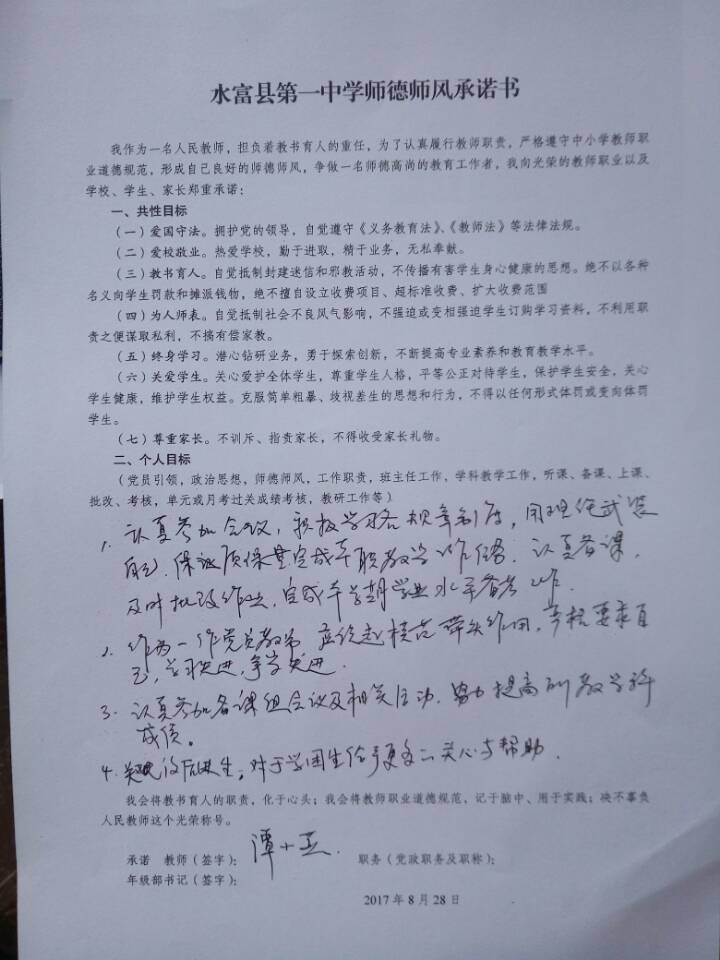 水富县第一中学师德师风承诺书
我作为一名人民教师，担负着教书育人的重任，为了认真履行教师职责，严格遵守中小学教师职
业道德规范，形成自己良好的师德师风，争做一名师德高尚的教育工作者，我向光荣的教师职业以及
学校、学生、家长郑重承诺：
一、共性目标
（一）爱国守法。拥护党的领导，自觉遵守《义务教育法》、《教师法》等法律法规。
（二）爱校敬业。热爱学校，勤于进取，精于业务，无私奉献。
（三）教书育人。自觉抵制封建迷信和邪教活动，不传播有害学生身心健康的思想。绝不以各种
名义向学生罚款和摊派钱物，绝不擅自设立收费项目、超标准收费、扩大收费范围
（四）为人师表。自觉抵制社会不良风气影响，不强迫或变相强迫学生订购学习资料，不利用职
责之便谋取私利，不搞有偿家教。
（五）终身学习。潜心钻研业务，勇于探索创新，不断提高专业素养和教育教学水平。
（六）关爱学生。关心爱护全体学生，尊重学生人格，平等公正对待学生，保护学生安全，关心
学生健康，维护学生权益。克服简单粗暴、歧视差生的思想和行为，不得以任何形式体罚或变向体罚
学生。
（七）尊重家长。不训斥、指责家长，不得收受家长礼物。
二、个人目标
（党员引领，政治思想，师德师风，工作职责，班主任工作，学科教学工作，听课、备课、上课、
批改、考核，单元或月考过关成绩考核，教研工作等）
1. 认真参加会议，积极学习各规章制度，用理论武装
自己，保证质保量完成本职教学工作任务，认真备课，
及时批改作业，完成本学期学业水平备考工作．
2. 作为一作党员教师，应给起模范带头作用，严格要求自
己，学习先进，争当先进．
3. 认真参加备课组会议及相关活动，努力提高教学科
成绩。
4. 后进生，对于学困生给予更多的关心与帮助．
我会将教书育人的职责，化于心头；我会将教师职业道德规范，记于脑中、用于实践；决不辜负
人民教师这个光荣称号。
承诺 教师（签字）：谭小 职务（党政职务及职称）：
年级部书记（签字）：
2017 年 8 月 28 日